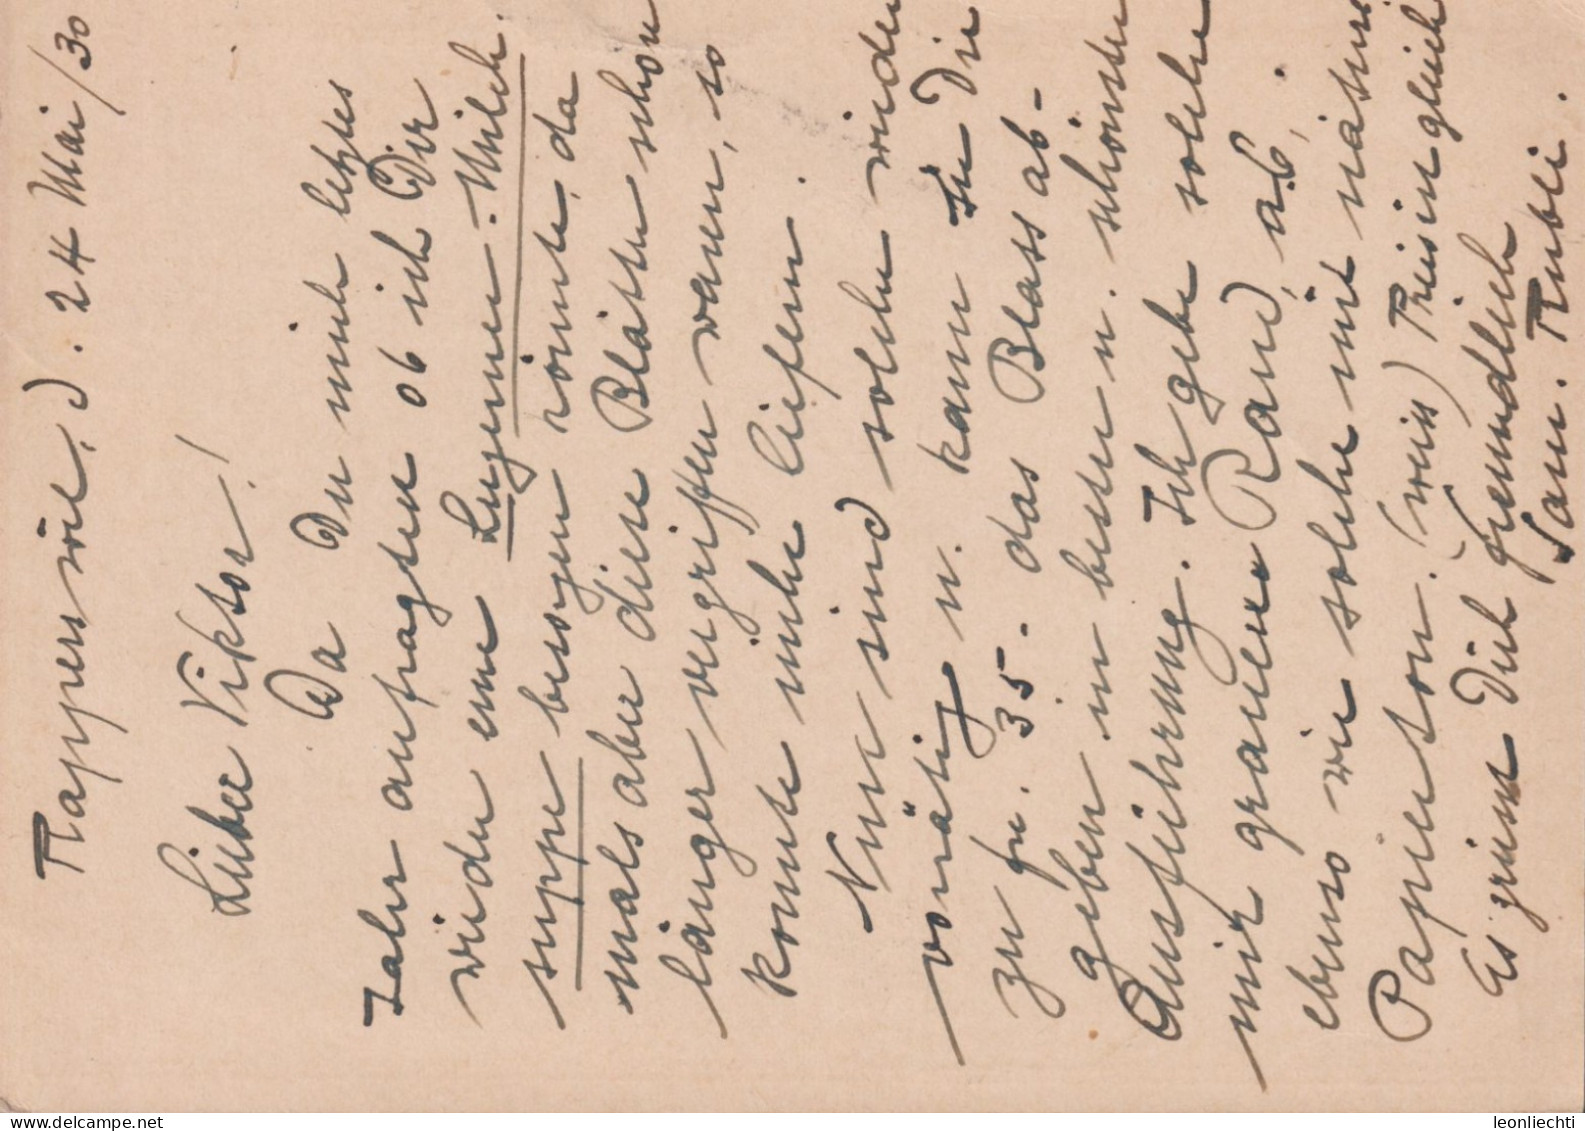 Rapperswil, d. 24 Mai/30
Lieber Viktor!
Da Du mich letztes
Jahr anfragtest ob ich Dir
wieder eine Luzerner-Milch
suppe besorgen könnte, da
mals aber diese Blätter schon
länger vergriffen waren, so
konnte nicht liefern.
Nun sind solche wieder
vorrätig u. kann Dir
zu fr. 35.- das Blass ab-
geben in bester u. schönster
Ausführung. Ich gebe solche
mit grauem Rand, ab,
ebenso wie solche mit
Papierton. (weiss) Preis gleich
Es grüsst Dich freundlich
Sam. Rubli.
www.delcampe.net
leonliechti